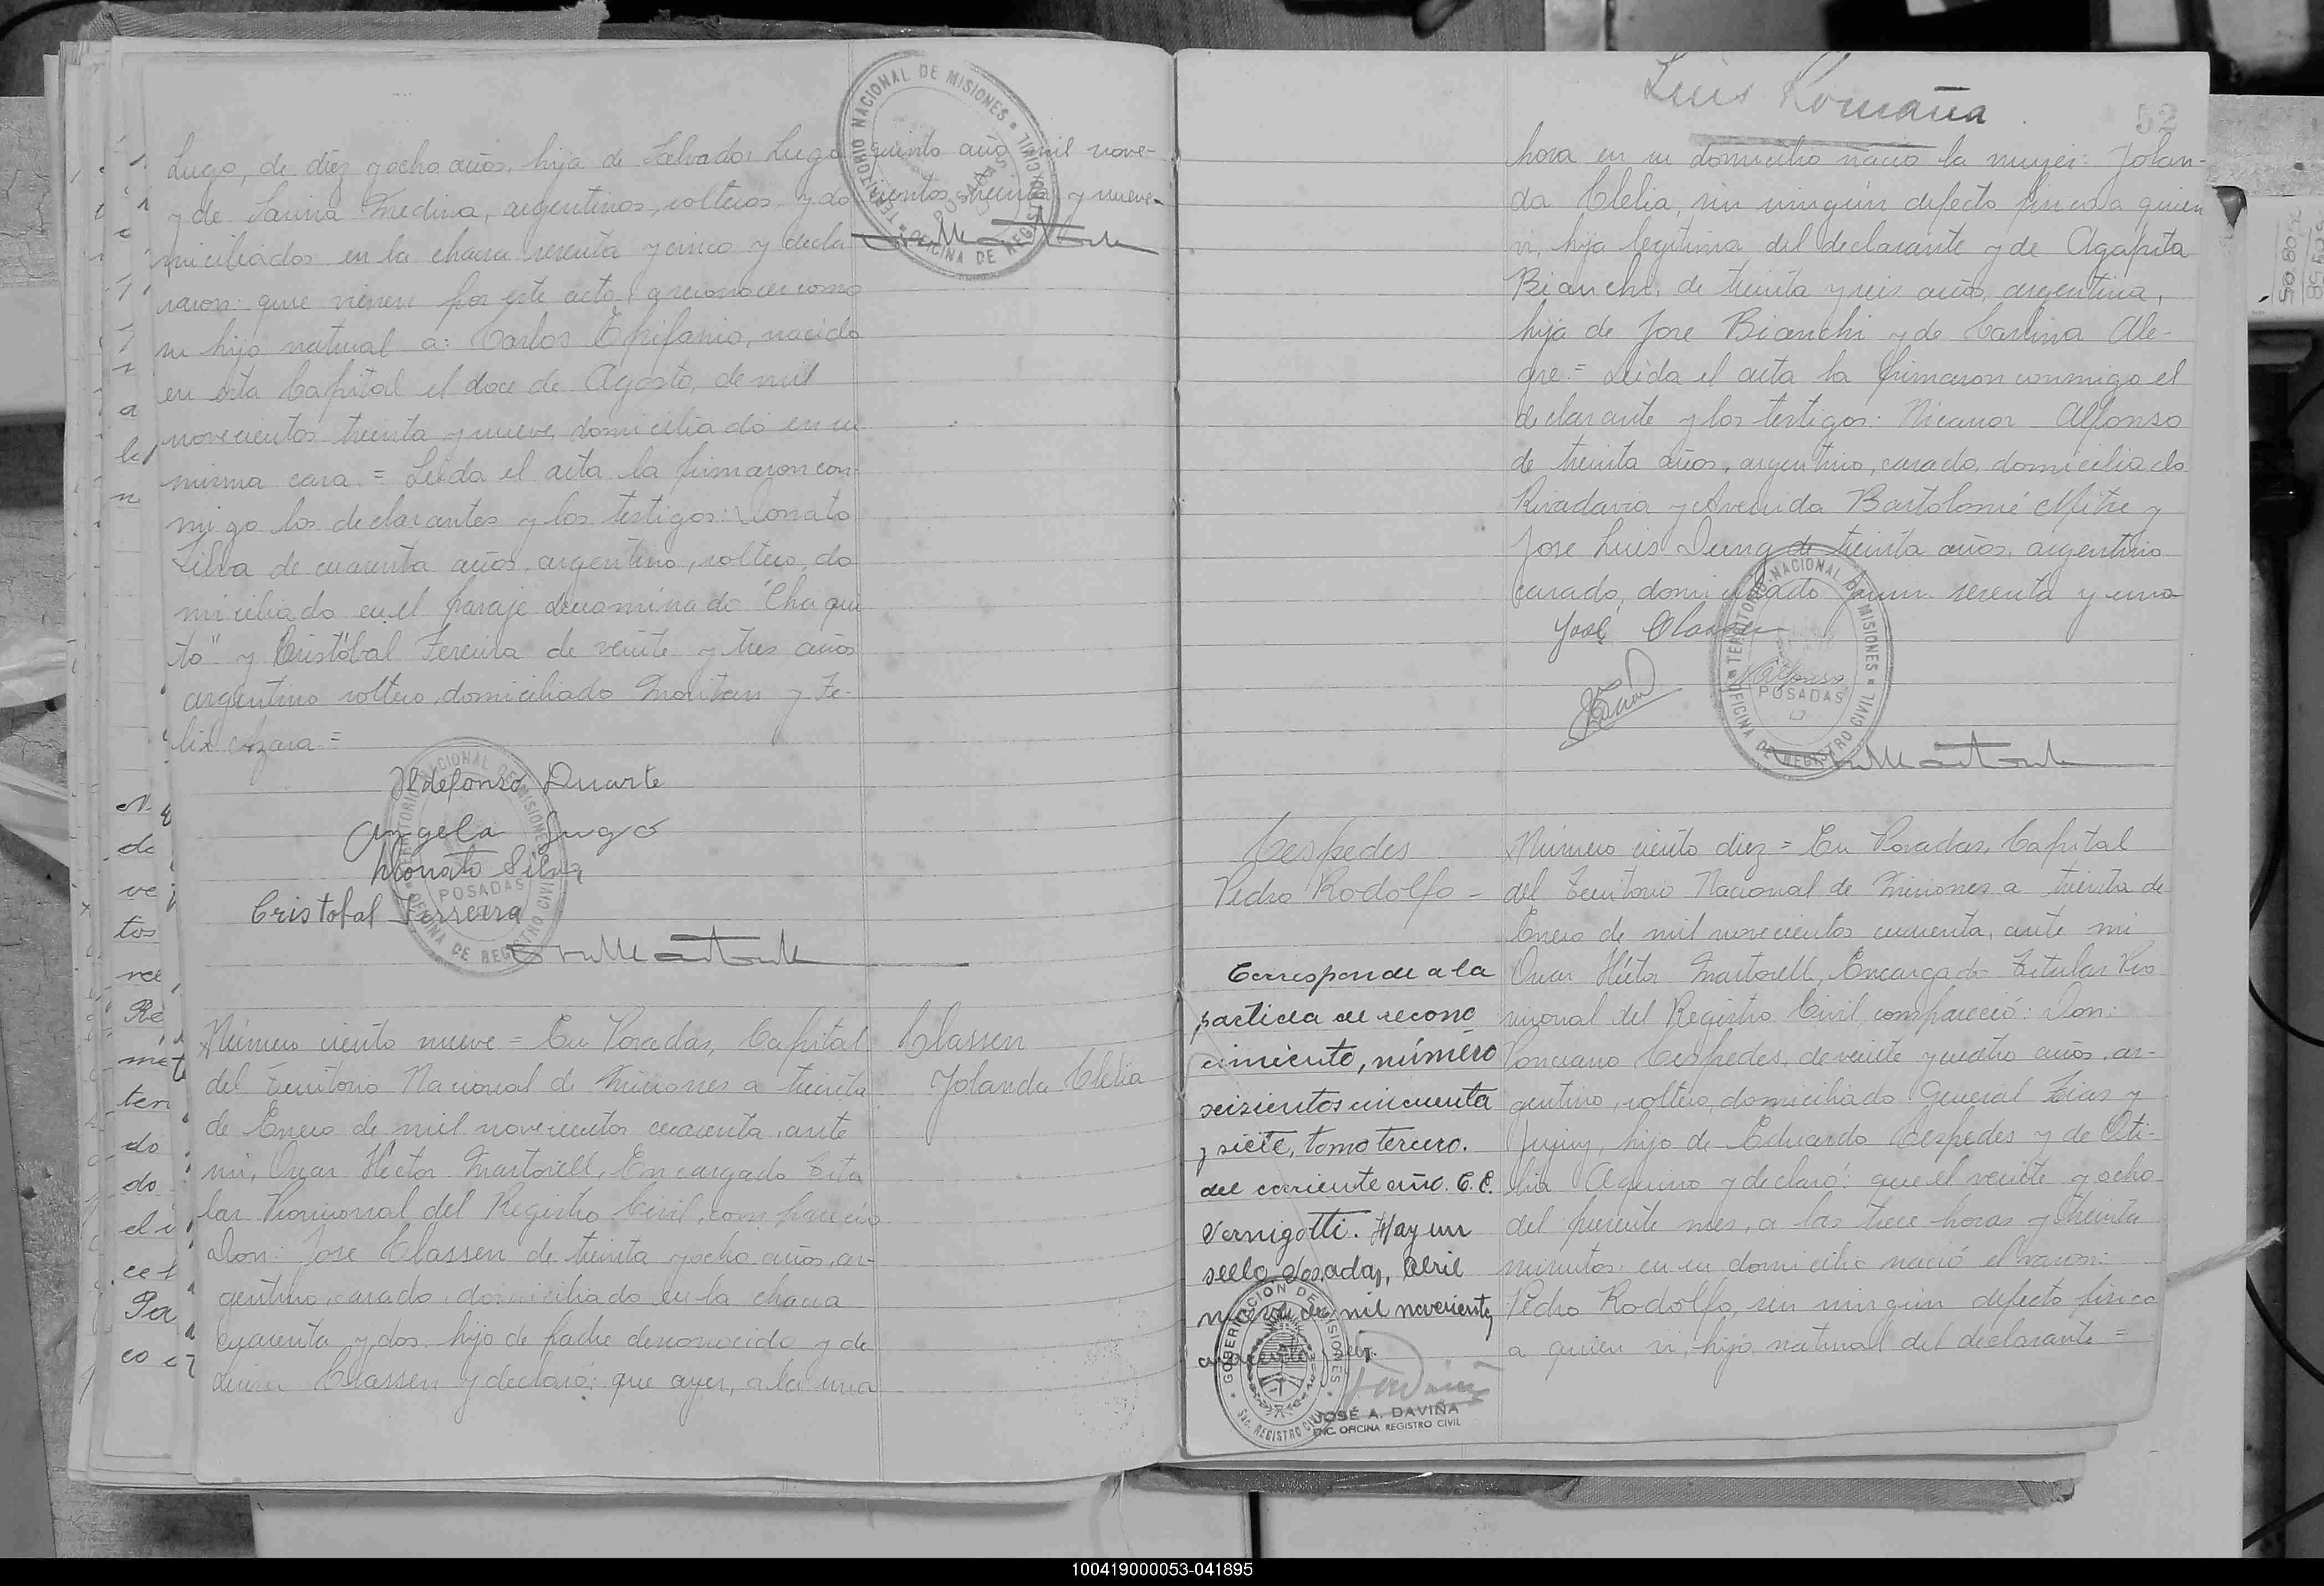 Lugo, de diez y ocho años, hija de Salvador Lugo
y de Sarina Medina, argentinos, solteros, y do
miciliados en la chacra sesenta y cinco y decla
raron: que vienen por este acto a reconocer como
su hijo natural a: Carlos Epifanio, nacido
en esta Capital el doce de Agosto, de mil
novecientos treinta y nueve, domiciliado en su
misma casa. = Leida el acta la firmaron con-
migo los declarantes y los testigos: Donato
Silva de cuarenta años, argentino, soltero, do
miciliado en el paraje denominado "Chaqui
to" y Cristóbal Ferreira de veinte y tres años
argentino soltero, domiciliado y Fe-
lix Azara =
quinto año mil nove-
cientos treinta y nueve.
TERRITORIO NACIONAL DE MISIONES
OFICINA DE REGISTRO CIVIL
POSADAS
Ildefonso Duarte
Angela Lugo
Donato Silva
Cristobal Ferreira
TERRITORIO NACIONAL DE MISIONES
OFICINA DE REGISTRO CIVIL
POSADAS
Número ciento nueve = En Posadas, Capital
del Territorio Nacional de Misiones a treinta
de Enero de mil novecientos cuarenta, ante
mi, Omar Héctor Martorell, Encargado Titu
lar Provisional del Registro Civil, compareció
Don: Jose Classen de treinta y ocho años, ar-
gentino, casado, domiciliado en la chacra
cuarenta y dos, hijo de padre desconocido y de
Luisa Classen y declaró: que ayer, a la una
Classen
Jolanda Clelia
Luis Romaña
52
hora en su domicilio nació la mujer: Jolan-
da Clelia, sin ningún defecto físico a quien
vi, hija legítima del declarante y de Agapita
Bianchi, de treinta y seis años, argentina,
hija de Jose Bianchi y de Carlina Ale-
gre. = Leida el acta la firmaron conmigo el
declarante y los testigos: Nicanor Alfonso
de treinta años, argentino, casado, domiciliado
Rivadavia y Avenida Bartolomé Mitre y
Jose Luis de treinta años, argentino
casado, domiciliado Junin sesenta y uno
José Classen
NAlfonso
TERRITORIO NACIONAL DE MISIONES
OFICINA DE REGISTRO CIVIL
POSADAS
Cespedes
Pedro Rodolfo -
Número ciento diez = En Posadas, Capital
del Territorio Nacional de Misiones a treinta de
Enero de mil novecientos cuarenta, ante mi
Omar Héctor Martorell, Encargado Titular Pro
visional del Registro Civil, compareció: Don:
Ponciano Cespedes, de veinte y cuatro años, ar-
gentino, soltero, domiciliado General Frias y
Jujuy, hijo de Eduardo Cespedes y de Oti-
lia Aquino y declaró: que el veinte y ocho
del presente mes, a las trece horas y treinta
minutos en su domicilio nació el varon:
Pedro Rodolfo, sin ningún defecto físico
a quien vi, hijo natural del declarante =
Corresponde a la
partida de recono
cimiento, número
seiscientos cincuenta
y siete, tomo tercero.
del corriente año. C. C.
Vernigotti. Hay un
sello. Posadas, Abril
nueve de mil novecientos
GOBERNACION DE MISIONES
SEC. REGISTRO CIVIL
JOSÉ A. DAVIÑA
ENC. OFICINA REGISTRO CIVIL
100419000053-041895